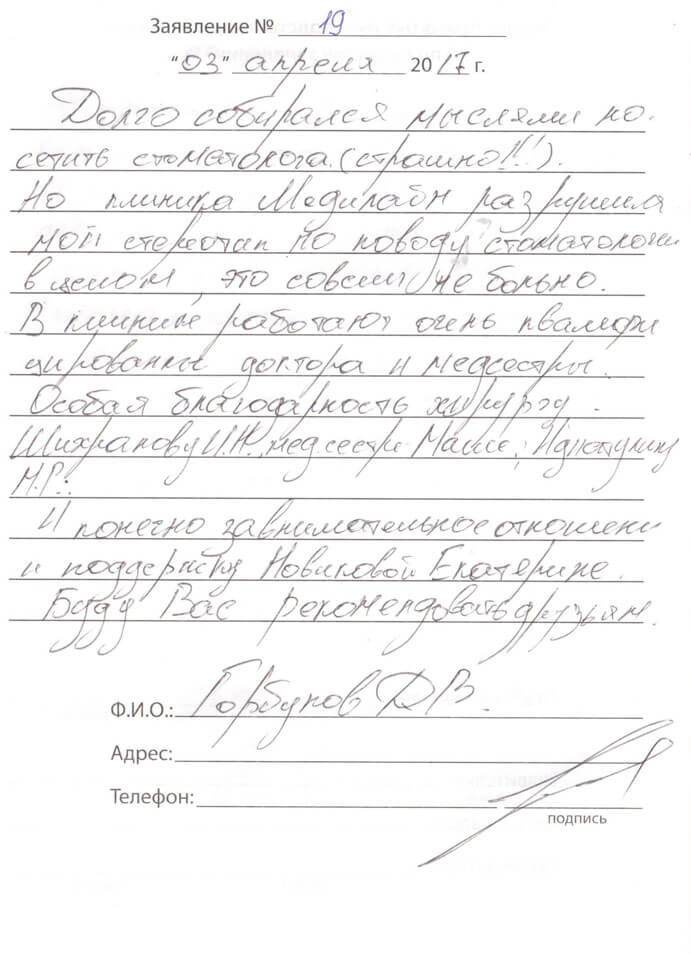 Заявление № 19
"03" апреля 2017 г.
Долго собирался мыслями по-
сетить стоматолога. (страшно!!!).
Но клиника Медилайн разрушила
мой стереотип по поводу стоматологии
в целом, это совсем не больно.
В клинике работают очень квалифи
цированные доктора и медсестры.
Особая благодарность хирургу
Шихранову И.Н., медсестре
М.Р.;
И конечно за внимательное отношение
и поддержку Новиковой Екатерине.
Буду Вас рекомендовать друзьям.
Ф.И.О.: Горбунов Д В.
Адрес:
Телефон:
подпись